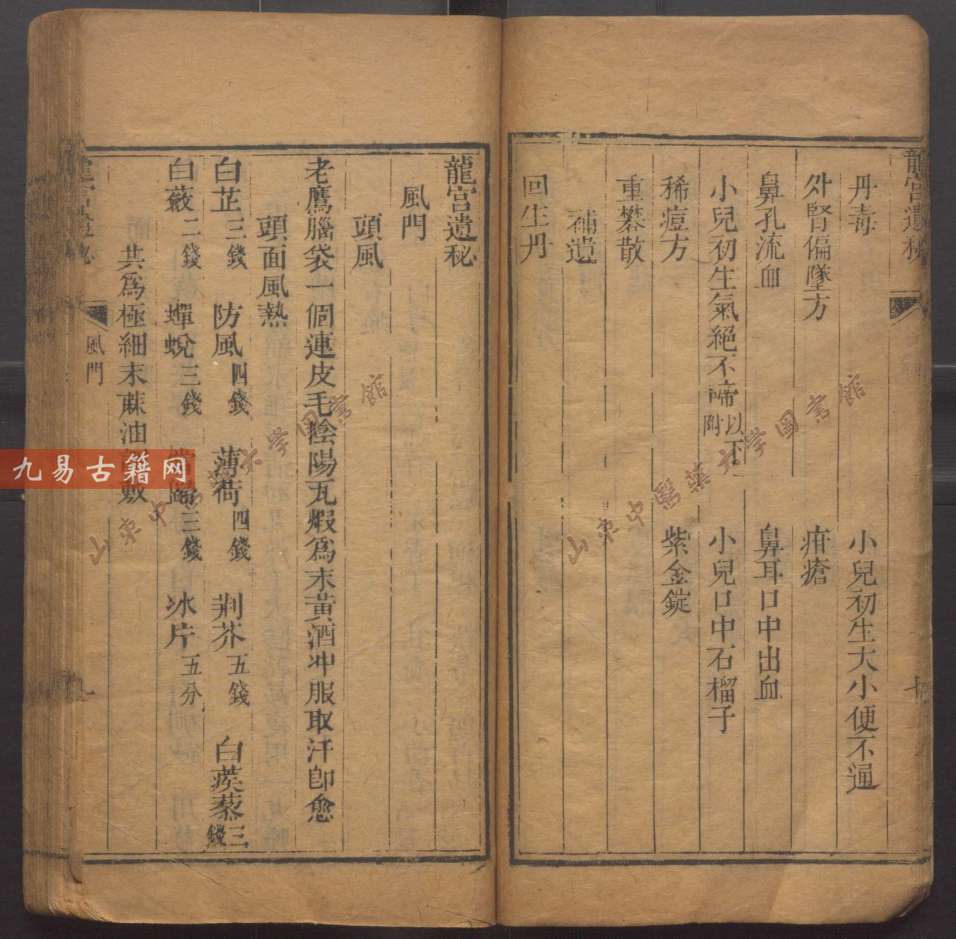 龍宮遺秘
丹毒　小兒初生大小便不通
外腎偏墜方　疳瘡
鼻孔流血　鼻耳口中出血
小兒初生氣絕不啼以下附　小兒口中石榴子
稀痘方　紫金錠
重礬散
補遺
回生丹
龍宮遺秘
風門
頭風
老鷹腦袋一個連皮毛陰陽瓦煆爲末黃酒冲服取汗卽愈
頭面風熱
白芷三錢　防風四錢　薄荷四錢　荆芥五錢　白蒺藜三錢
二錢　蟬蛻三錢　歸三錢　冰片五分
共爲極細末蔴油敷
風門
九易古籍网
山东中医药大学图书馆
山东中医药大学图书馆